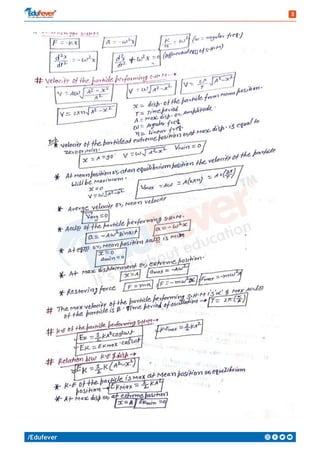 Edufever
3
F = -Kx
A = -ω²x
K/m = ω² (ω = angular freq)
d²x/dt² = -ω²x
d²x/dt² + ω²x = 0 (differential eqn of S.H.M)
# Velocity of the particle performing S.H.M. -
V = Aω√A²-x²/A²
V = ω√A²-x²
V = 2π/T √A²-x²
V = 2πn√A²-x²
x = disp. of the particle from mean position.
T = Time period
A = Max disp. or Amplitude.
ω = Angular freq.
n = linear freq.
* Velocity of the particle at extreme position or at max disp. is equal to
zero
x = A = 90 V = ω√A²-x² Vmin = 0
* At mean position or, at an equilibrium position the velocity of the particle
will be Maximum.
x = 0
V = ω√A²-x²
Vmax = Aω = A(2πn) = A(2π/T)
* Average velocity or, Mean velocity
Vavg = 0
* Accln of the particle performing S.H.M.
a = -Aω² sinωt
a = -ω²x
* At eqbm or, Mean position accln is min
x = 0
amin = 0
* At Max displacement or, extreme position.
x = A
amax = -Aω²
* Restoring force
F = ma
F = -mω²x
Fmax = -mω²A
# The max velocity of the particle performing S.H.M is 'α' & Max accln
of the particle is β - Time period of oscillation → T = 2π(α/β)
# K.E of the particle performing S.H.M →
EK = ½KA²cos²ωt
EKmax = ½KA²
EK = EKmax cos²ωt
# Relation b/w K.E & disp →
EK = ½K(A²-x²)
* K.E of the particle is max at Mean position or equilibrium
position → EKmax = ½KA²
* At Max disp or, at extreme position
x = A EKmin = 0
/Edufever